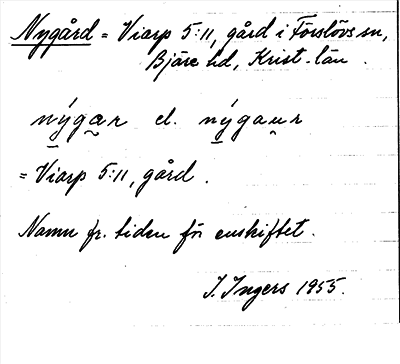 Nygård = Viarp 5:11, gård i Förslövs sn,
Bjäre hd, Krist. län.
nýgar el. nýgaur
= Viarp 5:11, gård.
Namn fr. tiden för enskiftet.
I. Ingers 1955.